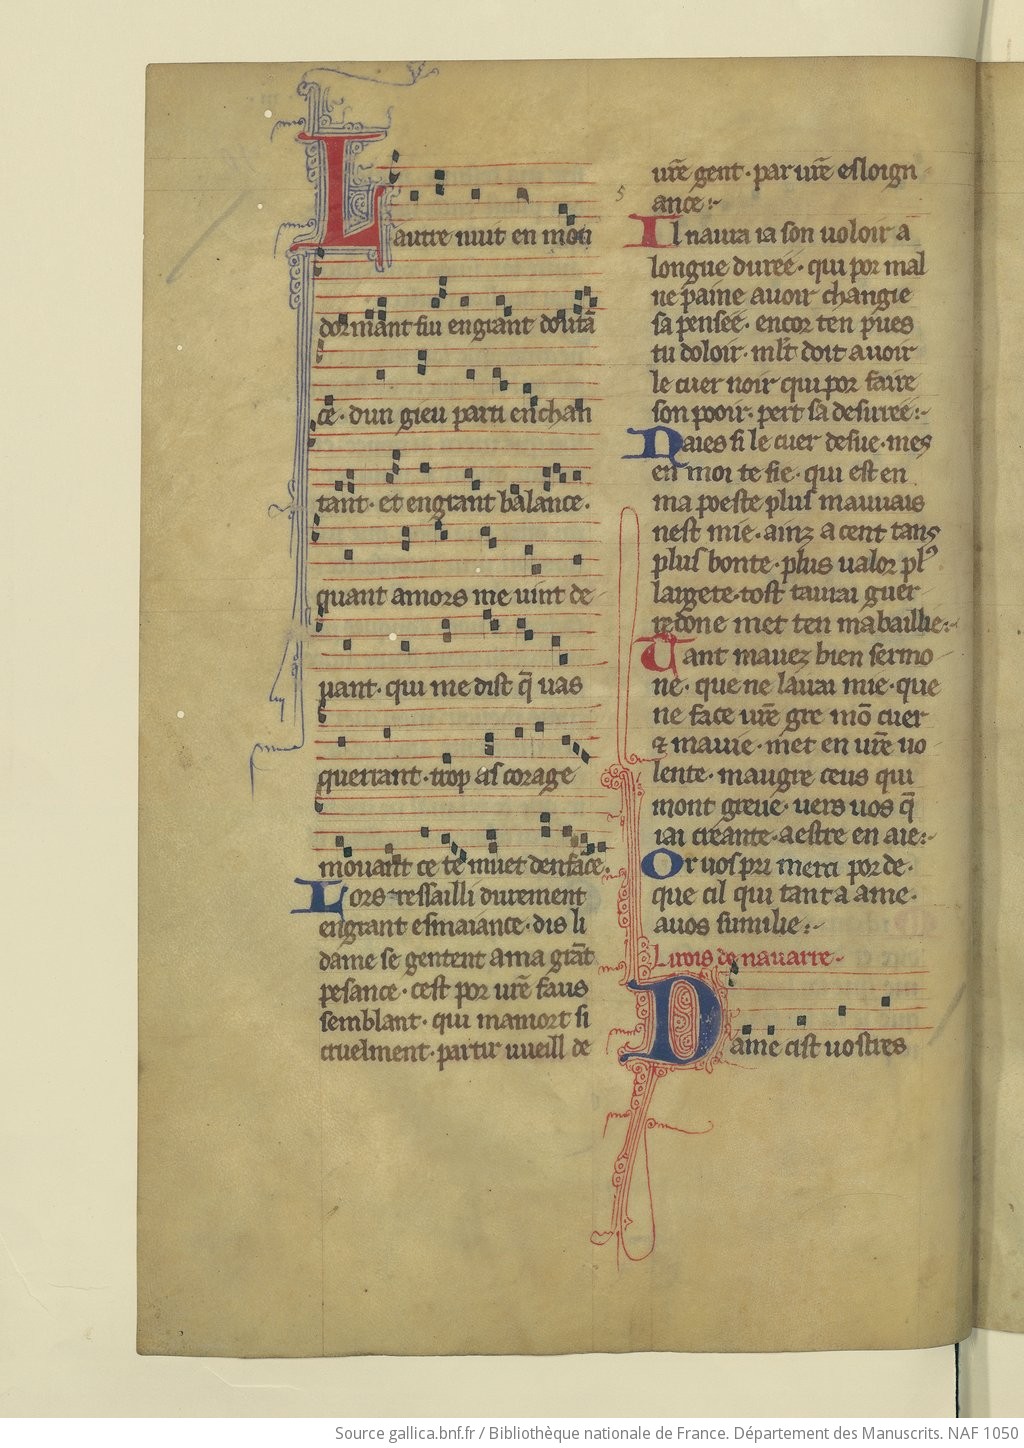 Lautre nuit en mon
dormant fui en grant douta̅
ce· dun gieu parti en chan
tant· et en grant balance·
quant amors me uint de
uant· qui me dist q̅ uas
querrant· trop as corage
mouant ce te muet denfance·
Lors tressailli durement
en grant esmaiance· dis li
dame se gentent a ma gra̅t
pesance· cest por ur̅e faus
semblant· qui ma mort si
cruelment· partir uueill de
ur̅e gent· par ur̅e esloign
ance:-
Il naura ia son uoloir a
longue duree· qui por mal
ne paine auoir change
sa pensee· encor ten pues
tu doloir· ml̅t doit auoir
le cuer noir qui por faire
son pooir· pert sa desirree:-
Naies si le cuer desue· mes
en moi te fie· qui est en
ma poeste plus mauuais
nest mie· ainz a cent tans
plus bonte· plus ualor pl9
largete· tost taurai guer
redone met ten ma baillie:-
Tant mauez bien sermo
ne· que ne lairai mie· que
ne face ur̅e gre mo̅ cuer
⁊ ma uie· met en ur̅e uo
lente· maugre ceus qui
mont greue· uers uos q̅
iai creante· a estre en aie:-
Or uos pri merci por de·
que cil qui tant a ame·
a uos sumilie:-
Li rois de nauarre·
Dame cist uostres
Source gallica.bnf.fr / Bibliothèque nationale de France. Département des Manuscrits. NAF 1050